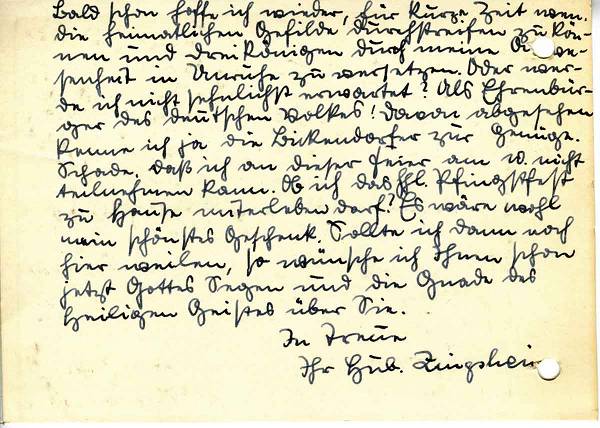 Bald schon hoffe ich wieder, für kurze Zeit wen.
die heimatlichen Gefilde durchstreifen zu kön-
nen und Dreikönigen durch meine
senheit in Unruhe zu versetzen. Oder wer-
de ich nicht sehnlichst erwartet? Als Ehrenbür-
ger des deutschen Volkes! Davon abgesehen
kenne ich ja die Bickendorfer zur Genüge.
Schade, daß ich an dieser Feier am 10. nicht
teilnehmen kann. Ob ich das hl. Pfingstfest
zu Hause miterleben darf? Es wäre wohl
mein schönstes Geschenk. Sollte ich dann noch
hier weilen, so wünsche ich Ihnen schon
jetzt Gottes Segen und die Gnade des
Heiligen Geistes über Sie.
In Treue
Ihr Hub. Zingsheim